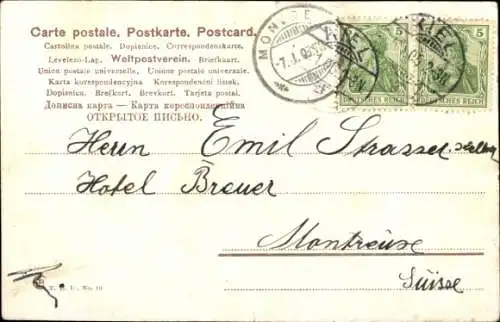 Carte postale. Postkarte. Postcard.
Cartolina postale. Dopisnice. Correspondenskarte.
Levelező-Lap. Weltpostverein. Brietkaart.
Union postale universelle. Unione postale universale.
Karta korespondencyjna. Korespondenční lístek.
Dopisnica. Brefkort. Brevkort. Tarjeta postal.
Дописна карта — Карта кореспонденційна
ОТКРЫТОЕ ПИСЬМО.
KIEL
KIEL
5
5
DEUTSCHES REICH
DEUTSCHES REICH
Herrn Emil Strasser
Hotel Breuer
Montreuse
Suisse